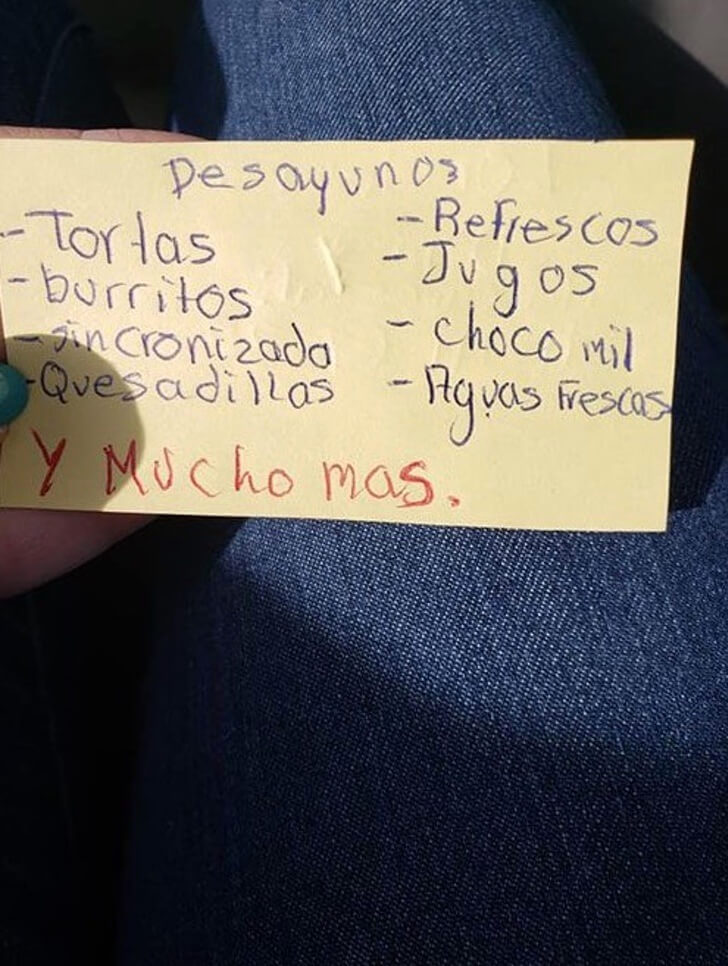 Desayunos
- Tortas
- burritos
- sincronizada
- Quesadillas
- Refrescos
- Jugos
- choco mil
- Aguas Frescas
Y Mucho mas.